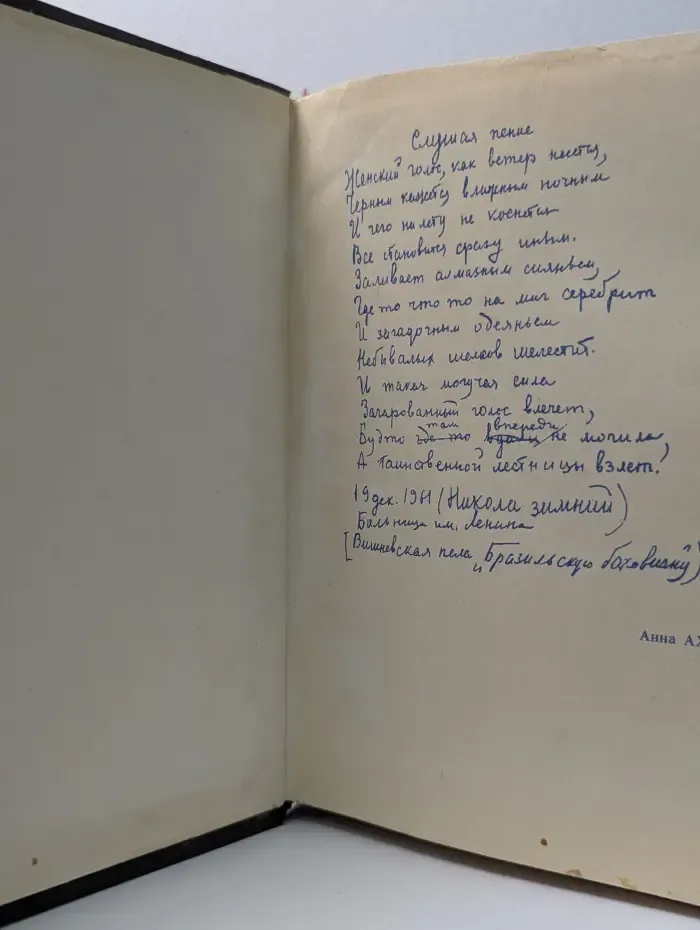 Слушая пение
Женский голос, как ветер несется,
Черным кажется влажным ночным
И чего на лету не коснется
Все становится сразу иным.
Заливает алмазным сияньем,
Где то что то на миг серебрит
И загадочным одеяньем
Небывалых шелков шелестит.
И такая могучая сила
Зачарованный голос влечет,
там впереди
Будто где-то вдали не могила,
А таинственной лестницы взлет!
19 дек. 1961 (Никола зимний)
Больница им. Ленина
[Вишневская пела и Бразильскую баховиану)
Анна АХ